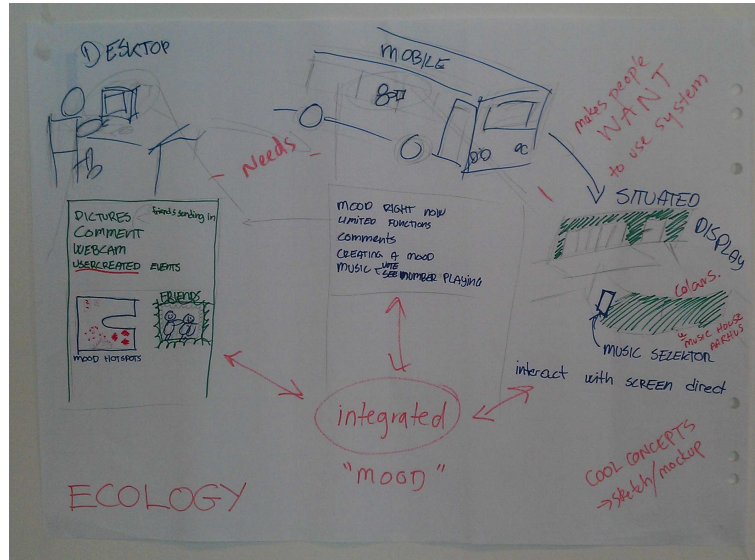 DESKTOP
MOBILE
makes people
WANT
to use system
- Needs -
SITUATED
DISPLAY
PICTURES
friends sending in
COMMENT
WEBCAM
USERCREATED EVENTS
FRIENDS
MOOD HOTSPOTS
MOOD RIGHT NOW
LIMITED FUNCTIONS
Comments
CREATING A MOOD
MUSIC
VOTE
SEE NUMBER PLAYING
colours.
MUSIC HOUSE
AARHUS
MUSIC SELEKTOR
interact with SCREEN direct
integrated
"MOOD"
ECOLOGY
COOL CONCEPTS
→ sketch/mockup